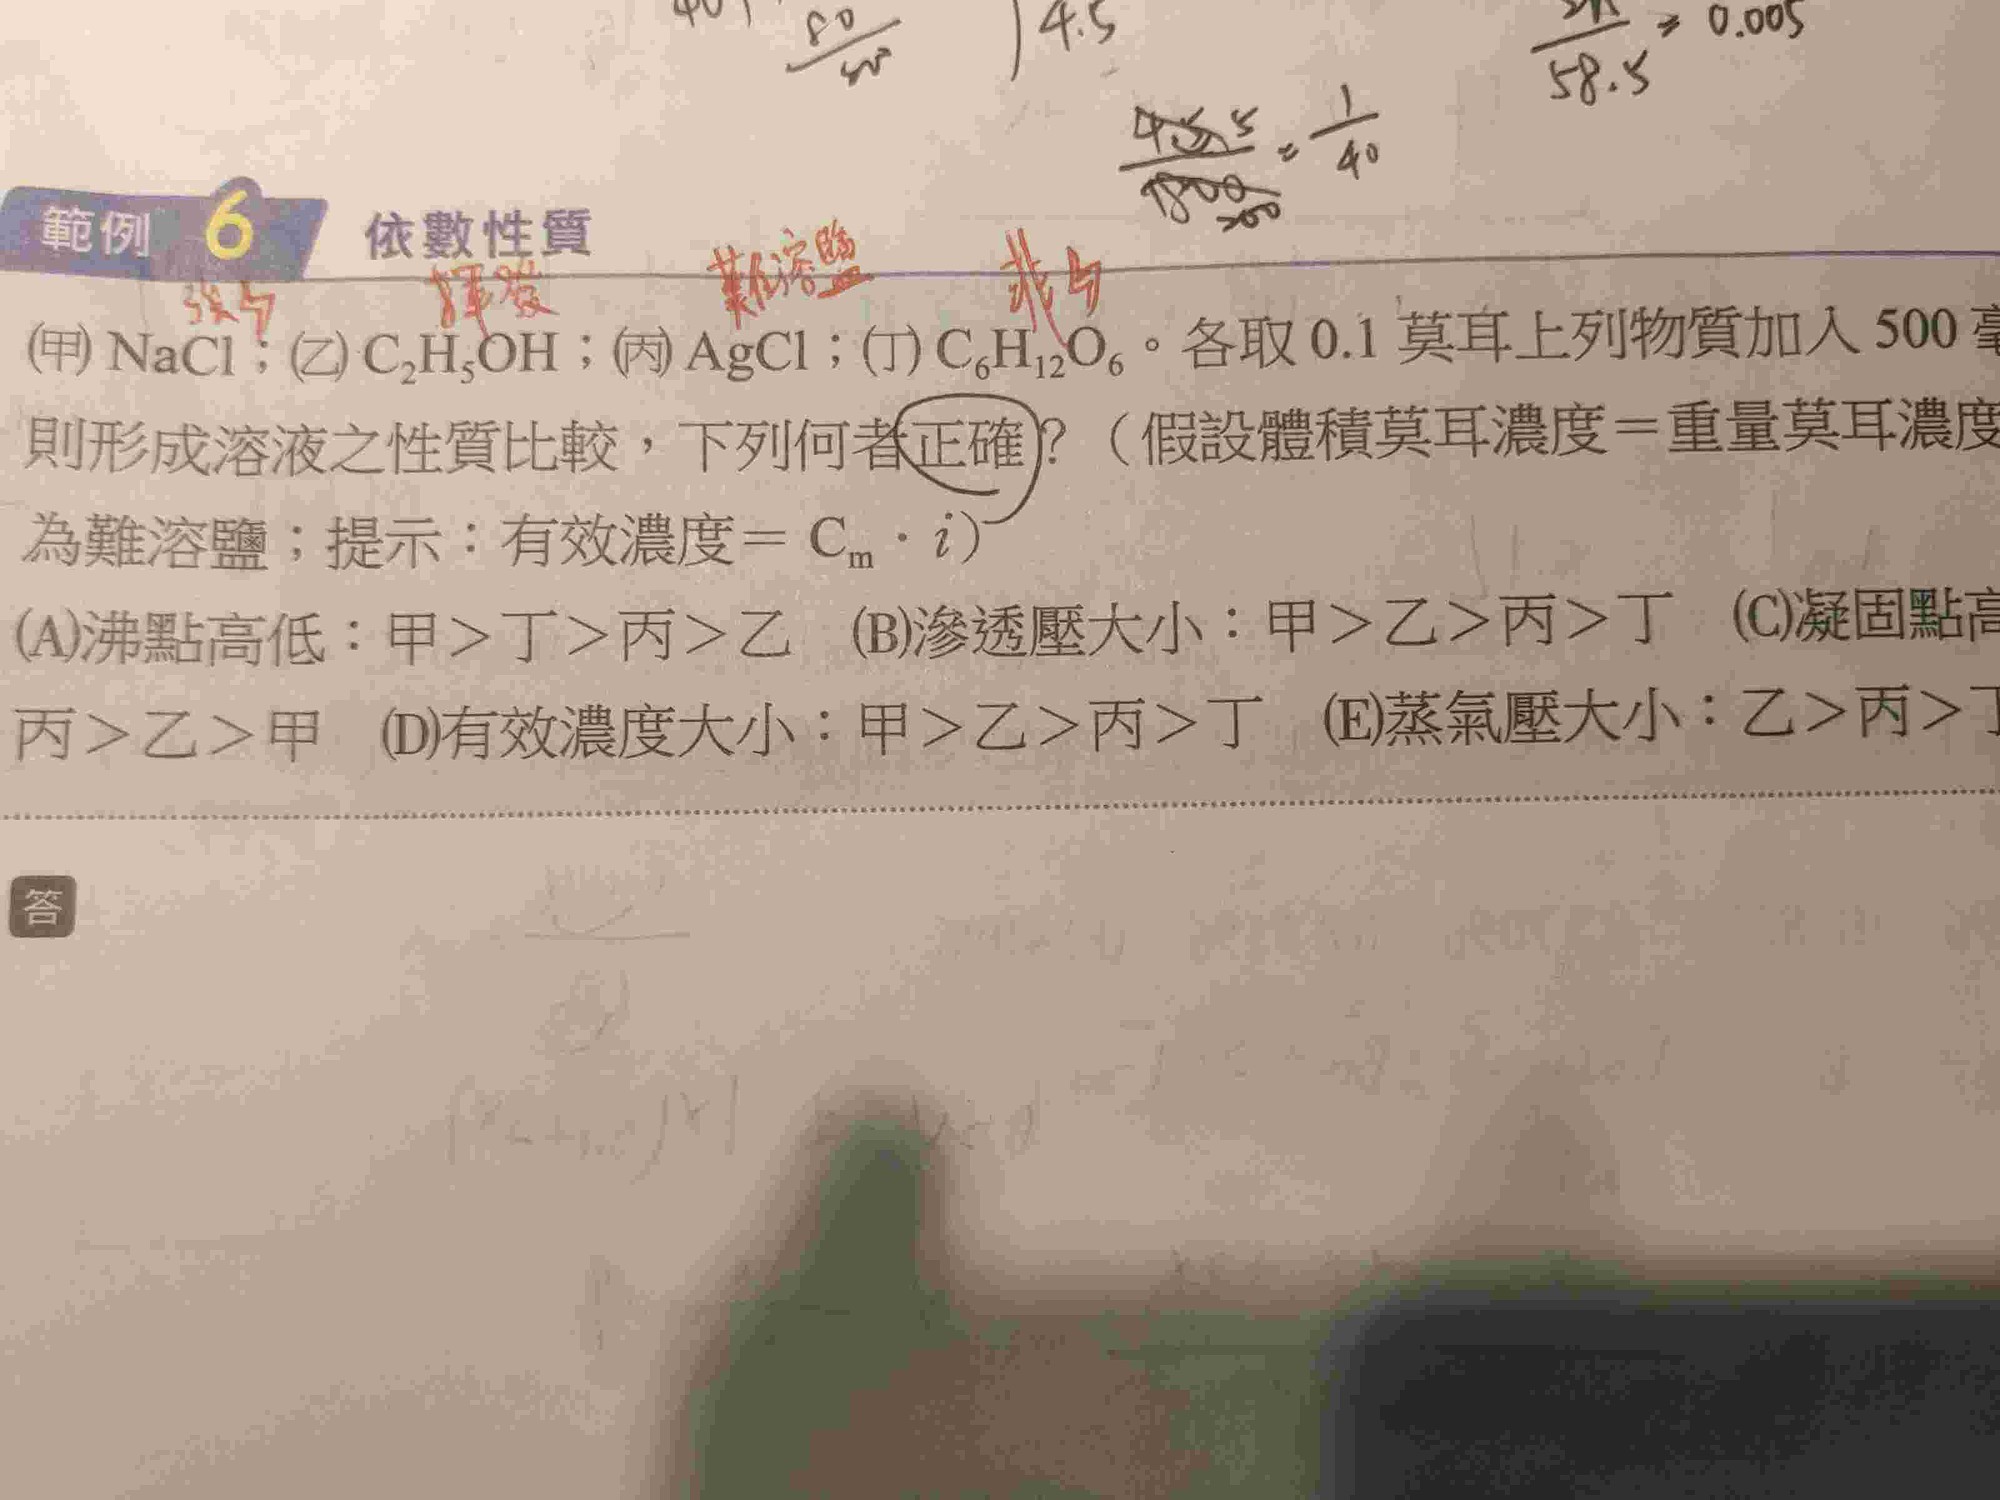 80
4.5
= 0.005
58.5
= 1/40
範例 6 依數性質
揮發 難溶鹽 非占
(甲) NaCl；(乙) C₂H₅OH；(丙) AgCl；(丁) C₆H₁₂O₆。各取 0.1 莫耳上列物質加入 500 毫
則形成溶液之性質比較，下列何者正確？（假設體積莫耳濃度＝重量莫耳濃度
為難溶鹽；提示：有效濃度＝ Cₘ · i）
(A)沸點高低：甲＞丁＞丙＞乙 (B)滲透壓大小：甲＞乙＞丙＞丁 (C)凝固點高
丙＞乙＞甲 (D)有效濃度大小：甲＞乙＞丙＞丁 (E)蒸氣壓大小：乙＞丙＞丁
答